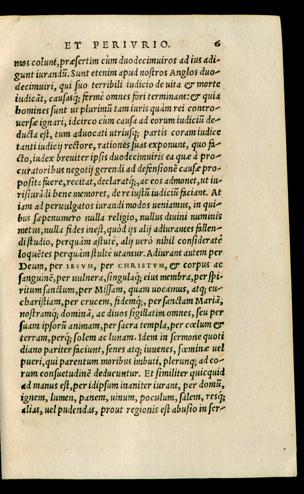 ET PERIVRIO. 6
mos colunt, præsertim cùm duodecimuiros ad ius adi-
gunt iurandū. Sunt etenim apud nostros Anglos duo-
decimuiri, qui suo terribili iudicio de uita & morte
iudicāt, causasq; fermè omnes fori terminant: & quia
homines sunt ut plurimū tam iuris quàm rei contro-
uersæ ignari, idcirco cùm causa ad eorum iudiciū de-
ducta est, tum aduocati utriusq; partis coram iudice
tanti iudicij rectore, rationes suas exponunt, quo fa-
cto, iudex breuiter ipsis duodecimuiris ea quæ à pro-
curatoribus negotij gerendi ad defensionē causæ pro-
posita fuere, recitat, declaratq;, ac eos admonet, ut iu-
risiurādi bene memores, de re iustū iudiciū faciant. At
iam ad peruulgatos iurandi modos ueniamus, in qui-
bus sæpenumero nulla religio, nullus diuini numinis
metus, nulla fides inest, quòd ijs alij adiurantes fallen-
di studio, perquàm astutè, alij uerò nihil consideratè
loquētes perquàm stultè utantur. Adiurant autem per
Deum, per IESVM, per CHRISTVM, & corpus ac
sanguinē, per uulnera, singulaq; eius membra, per spi-
ritum sanctum, per Missam, quam uocamus, atq; eu-
charistiam, per crucem, fidemq;, per sanctam Mariā,
nostramq; dominā, ac diuos sigillatim omnes, seu per
suam ipsorū animam, per sacra templa, per cœlum &
terram, perq; solem ac lunam. Idem in sermone quoti
diano pariter faciunt, senes atq; iuuenes, fœminæ uel
pueri, qui parentum moribus imbuti, plerunq; ad eo-
rum consuetudinē deducuntur. Et similiter quicquid
ad manus est, per id ipsum inaniter iurant, per domū,
ignem, lumen, panem, uinum, poculum, salem, resq;
alias, uel pudendas, prout regionis est abusio in ser-